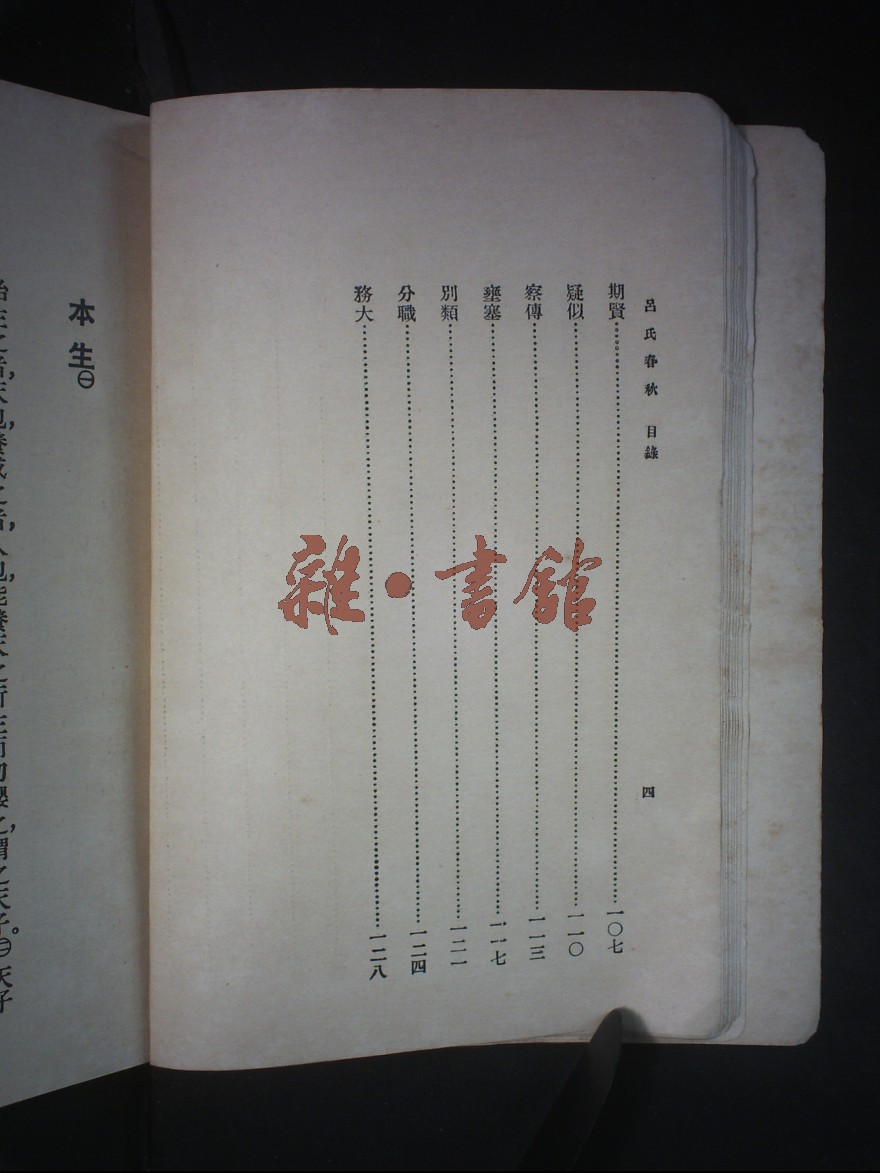 呂氏春秋 目錄 四
期賢 一〇七
疑似 一一〇
察傳 一一三
壅塞 一一七
別類 一二一
分職 一二四
務大 一二八
雜·書館
本生㊀
始生之者,天也,養成之者,人也,能養天之所生而勿攖之,謂之天子。㊁天子